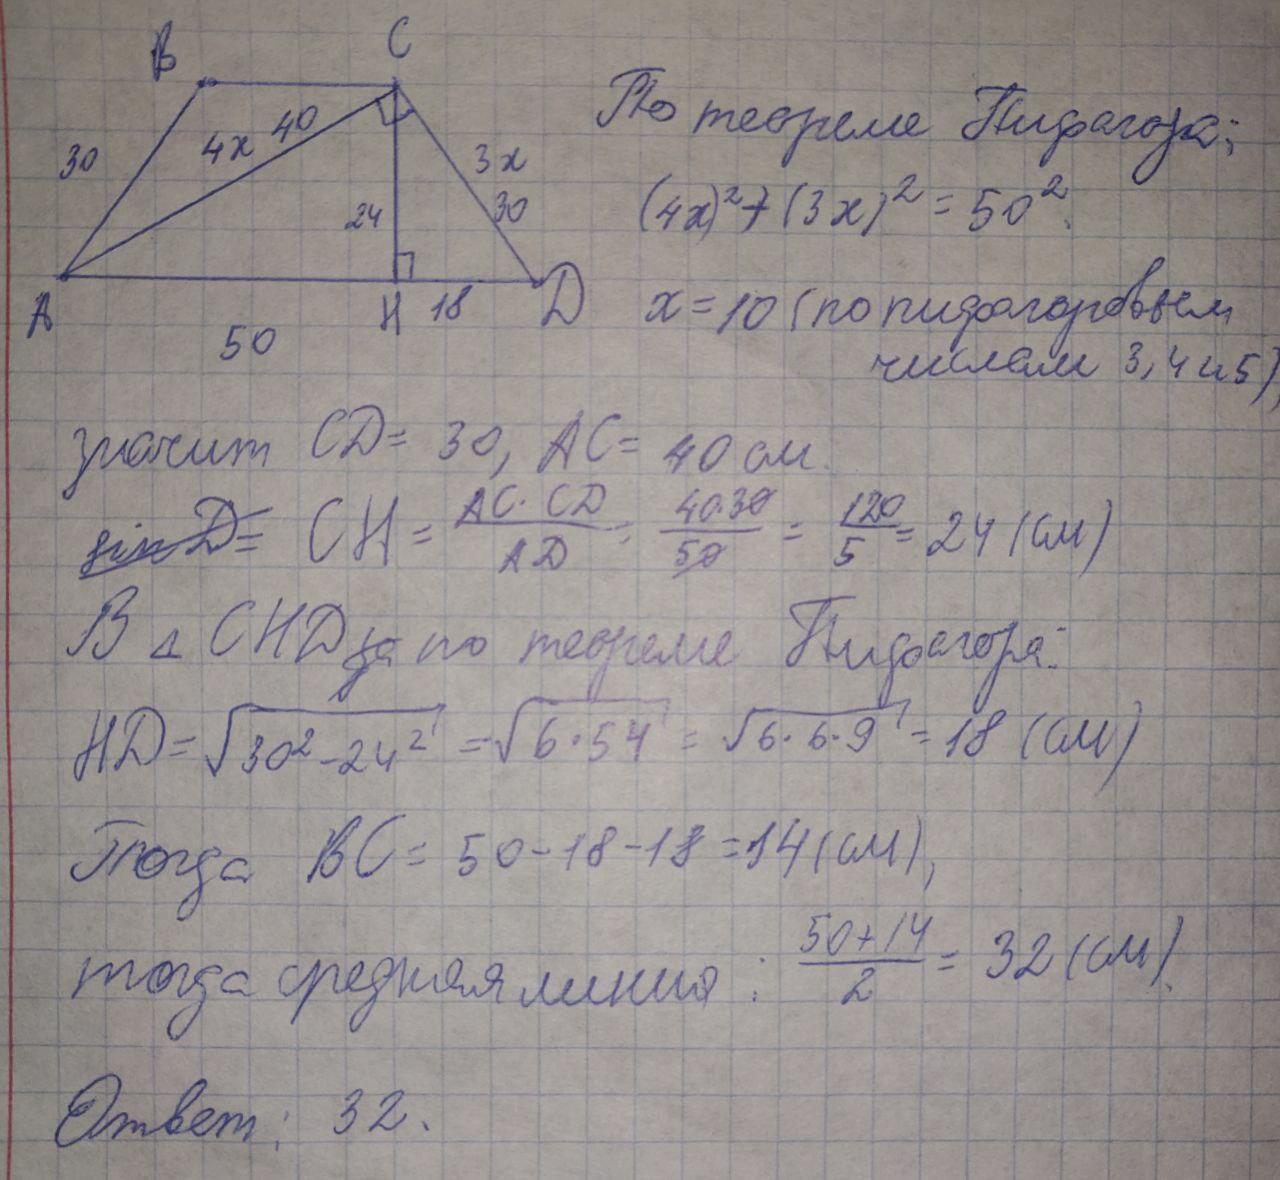 B
C
По теореме Пифагора:
30
4x
40
3x
24
30
(4x)² + (3x)² = 50².
A
H
18
D
50
x = 10 (по пифагоровым
числам 3, 4 и 5)
значит CD = 30, AC = 40 см.
sin D = CH = AC · CD / AD = 40·30 / 50 = 120 / 5 = 24 (см)
В Δ CHD по теореме Пифагора:
HD = √(30² - 24²) = √(6·54) = √(6·6·9) = 18 (см)
Тогда BC = 50 - 18 - 18 = 14 (см),
тогда средняя линия : 50 + 14 / 2 = 32 (см).
Ответ: 32.